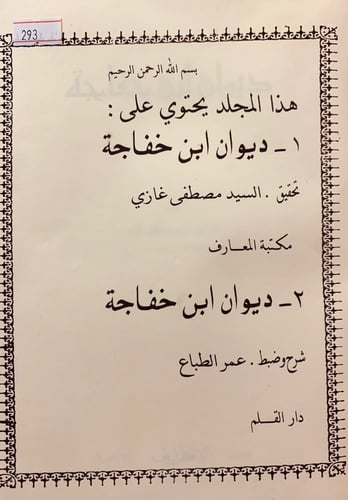 293
بسم الله الرحمن الرحيم
هذا المجلد يحتوي على :
١ ـ ديوان ابن خفاجة
تحقيق . السيد مصطفى غازي
مكتبة المعارف
٢ ـ ديوان ابن خفاجة
شرح وضبط . عمر الطباع
دار القلم